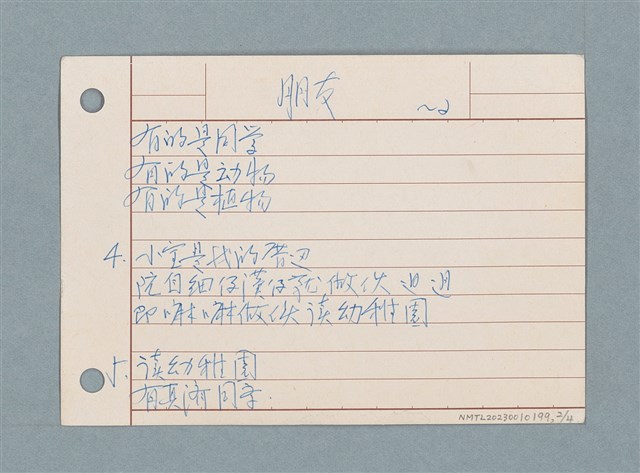 朋友
~2
有的是同学
有的是动物
有的是植物
4. 小宝是我的厝边
阮自细仔汉仔就做伙𨑨迌
即嘛嘛做伙读幼稚園
5. 读幼稚園
有真濟同学.
NMTL20230010199, 2/4